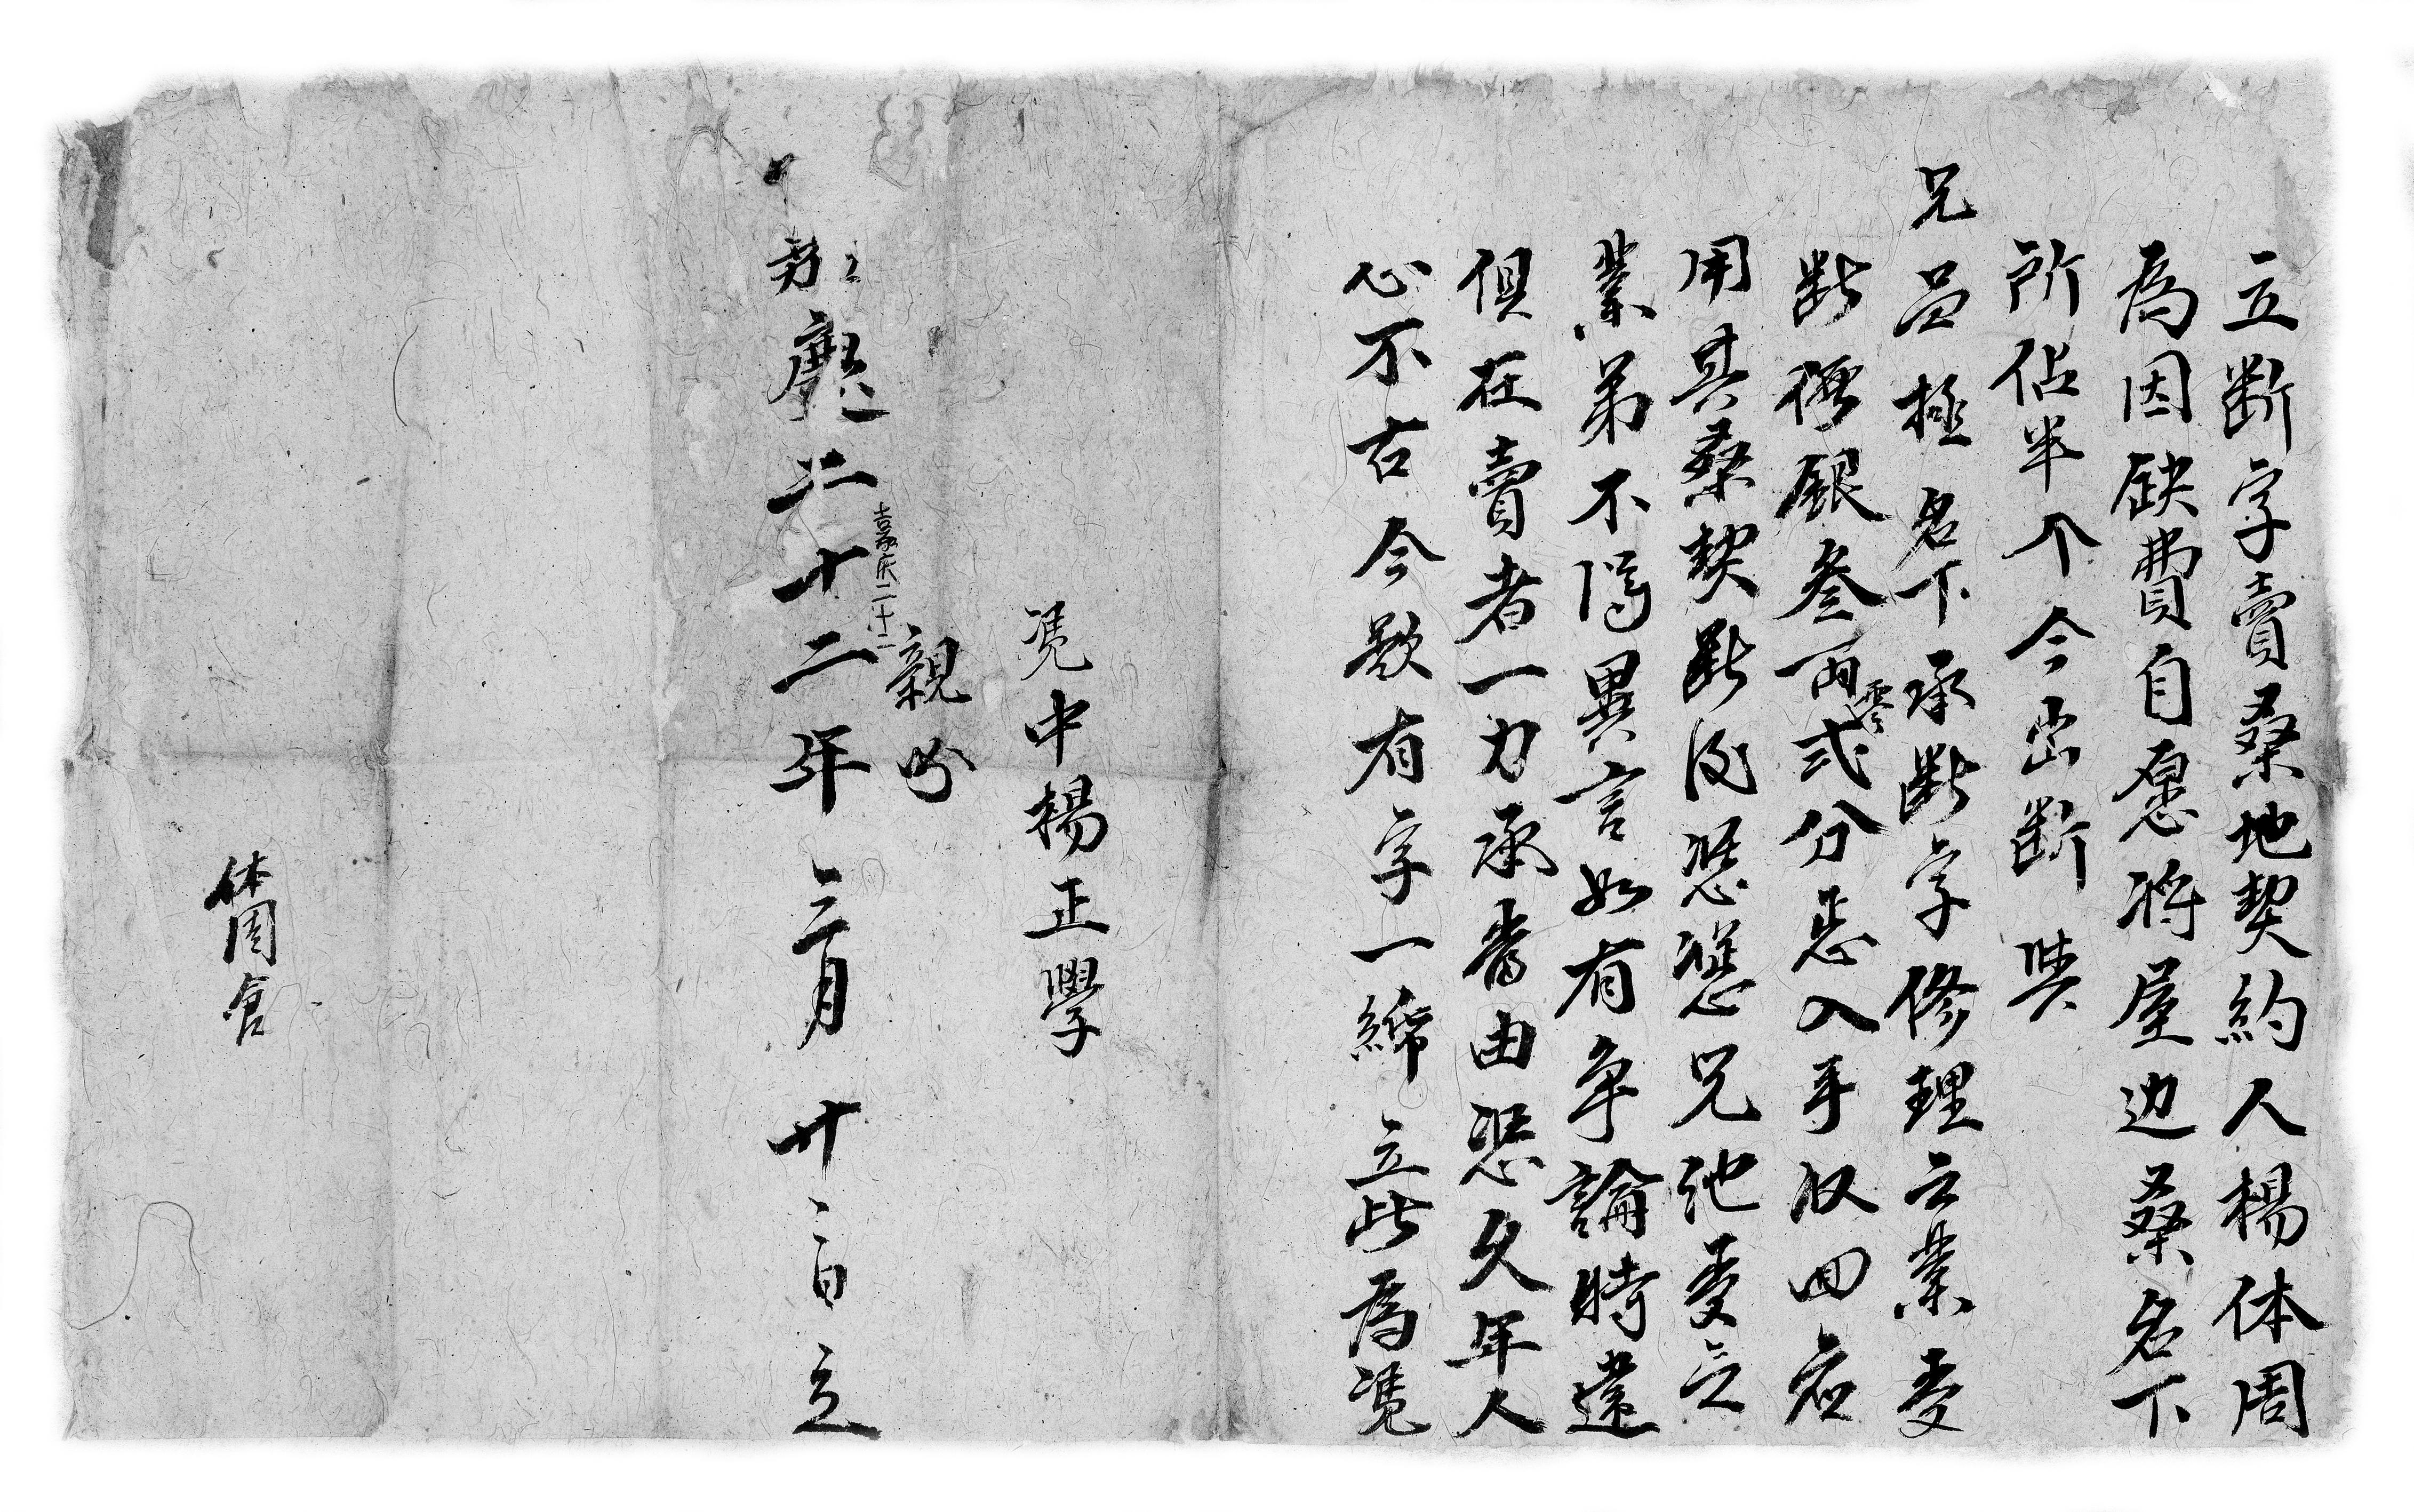 立断字賣桑地契約人楊体周
為因缺費自愿將屋边桑名下
所佔半个今出断與
兄品極名下承断字修理立業受
断得銀叁両零弍分忘入手收回應
用其桑契断後憑憑兄他受立
業弟不得異言如有争論時違
俱在賣者一力承當由恐久年人
心不古今欲有字一紙立此為憑
憑中楊正學
親吩
嘉慶二十二
慶二十二年三月廿二日立
体周倉